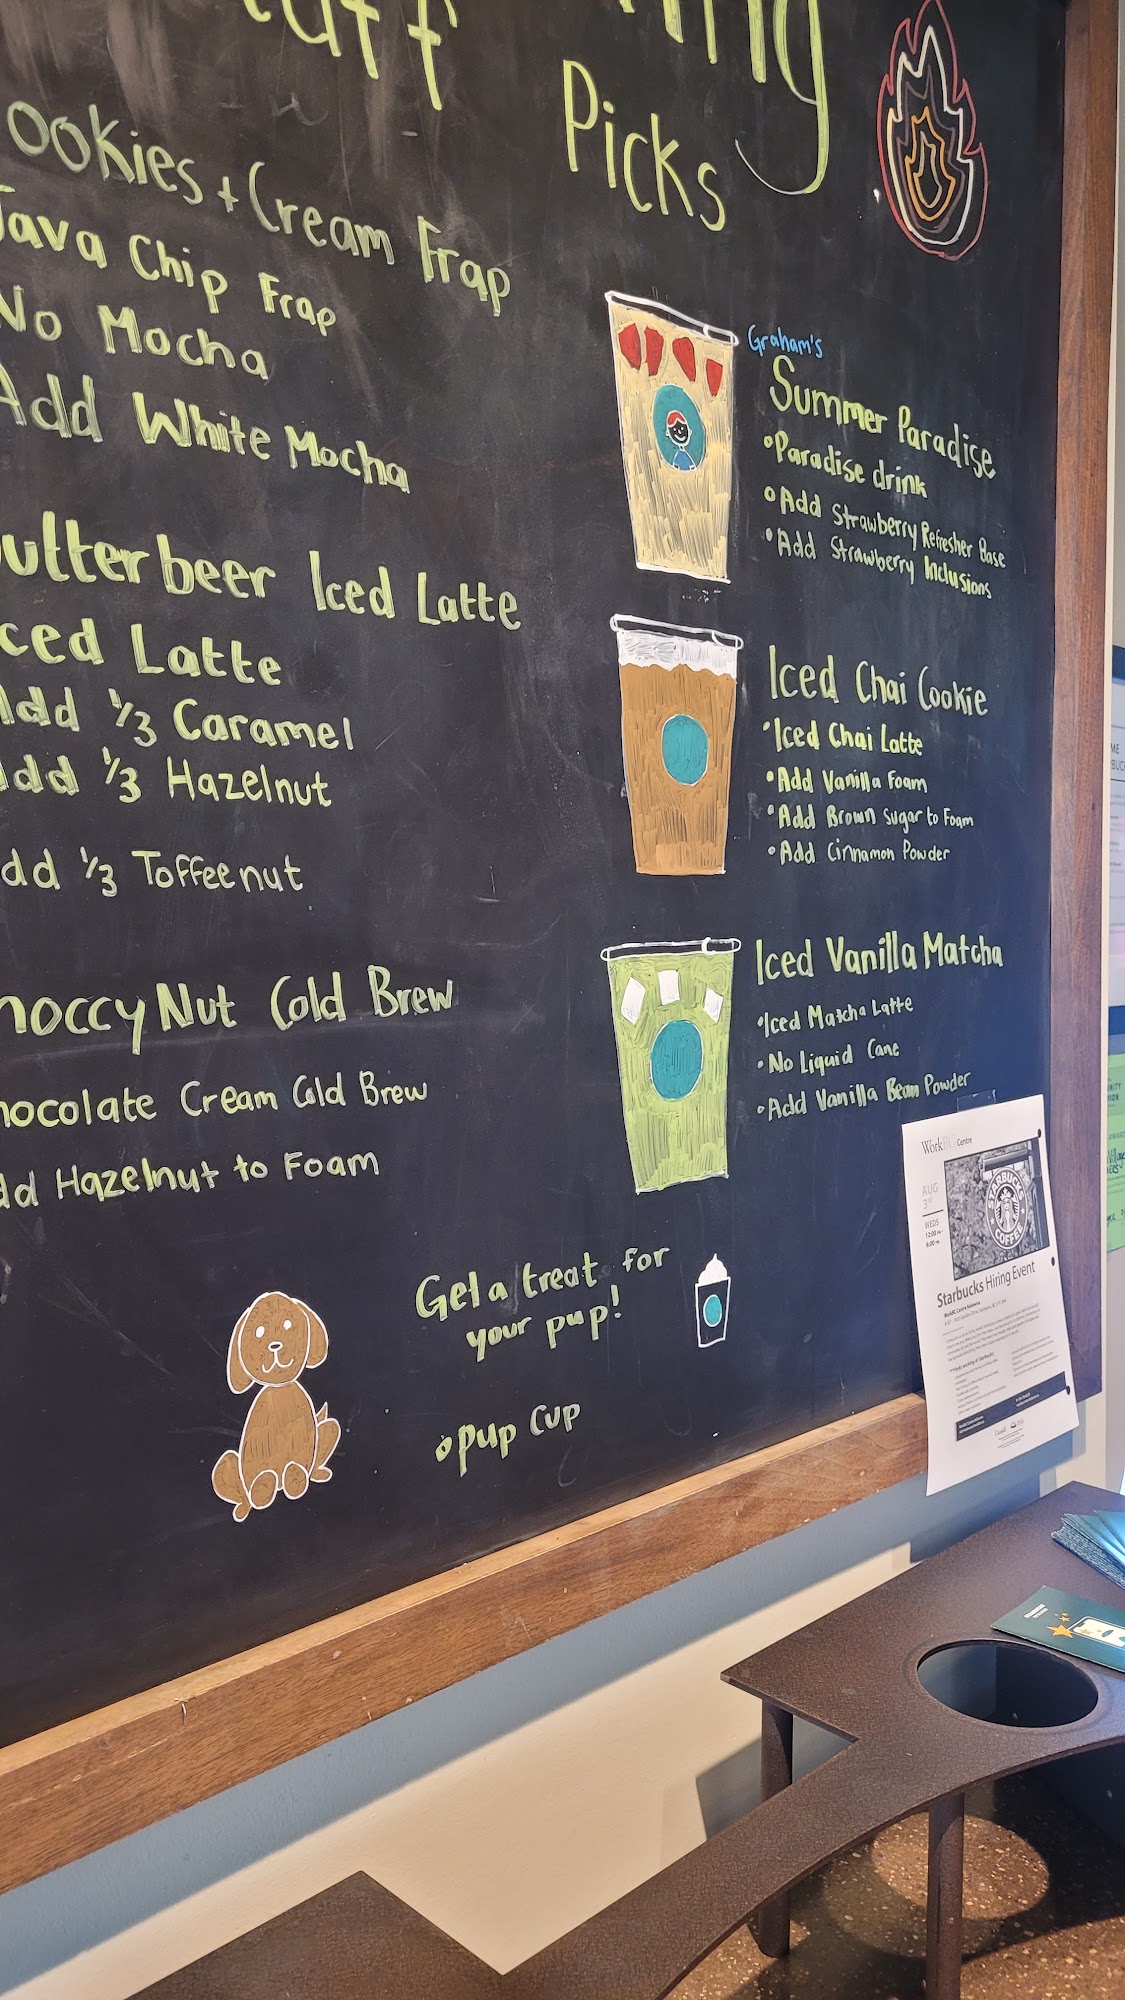 Picks
ookies + Cream Frap
Java Chip Frap
No Mocha
Add White Mocha
utterbeer Iced Latte
ced Latte
Add 1/3 Caramel
Add 1/3 Hazelnut
dd 1/3 Toffeenut
hoccy Nut Cold Brew
hocolate Cream Cold Brew
dd Hazelnut to Foam
Graham's
Summer Paradise
• Paradise drink
• Add Strawberry Refresher Base
• Add Strawberry Inclusions
Iced Chai Cookie
• Iced Chai Latte
• Add Vanilla Foam
• Add Brown Sugar to Foam
• Add Cinnamon Powder
Iced Vanilla Matcha
• Iced Matcha Latte
• No Liquid Cane
• Add Vanilla Bean Powder
Get a treat for
your pup!
• Pup Cup
WorkBC Centre
AUG
3rd
WEDS
STARBUCKS
COFFEE
Starbucks Hiring Event
Canada